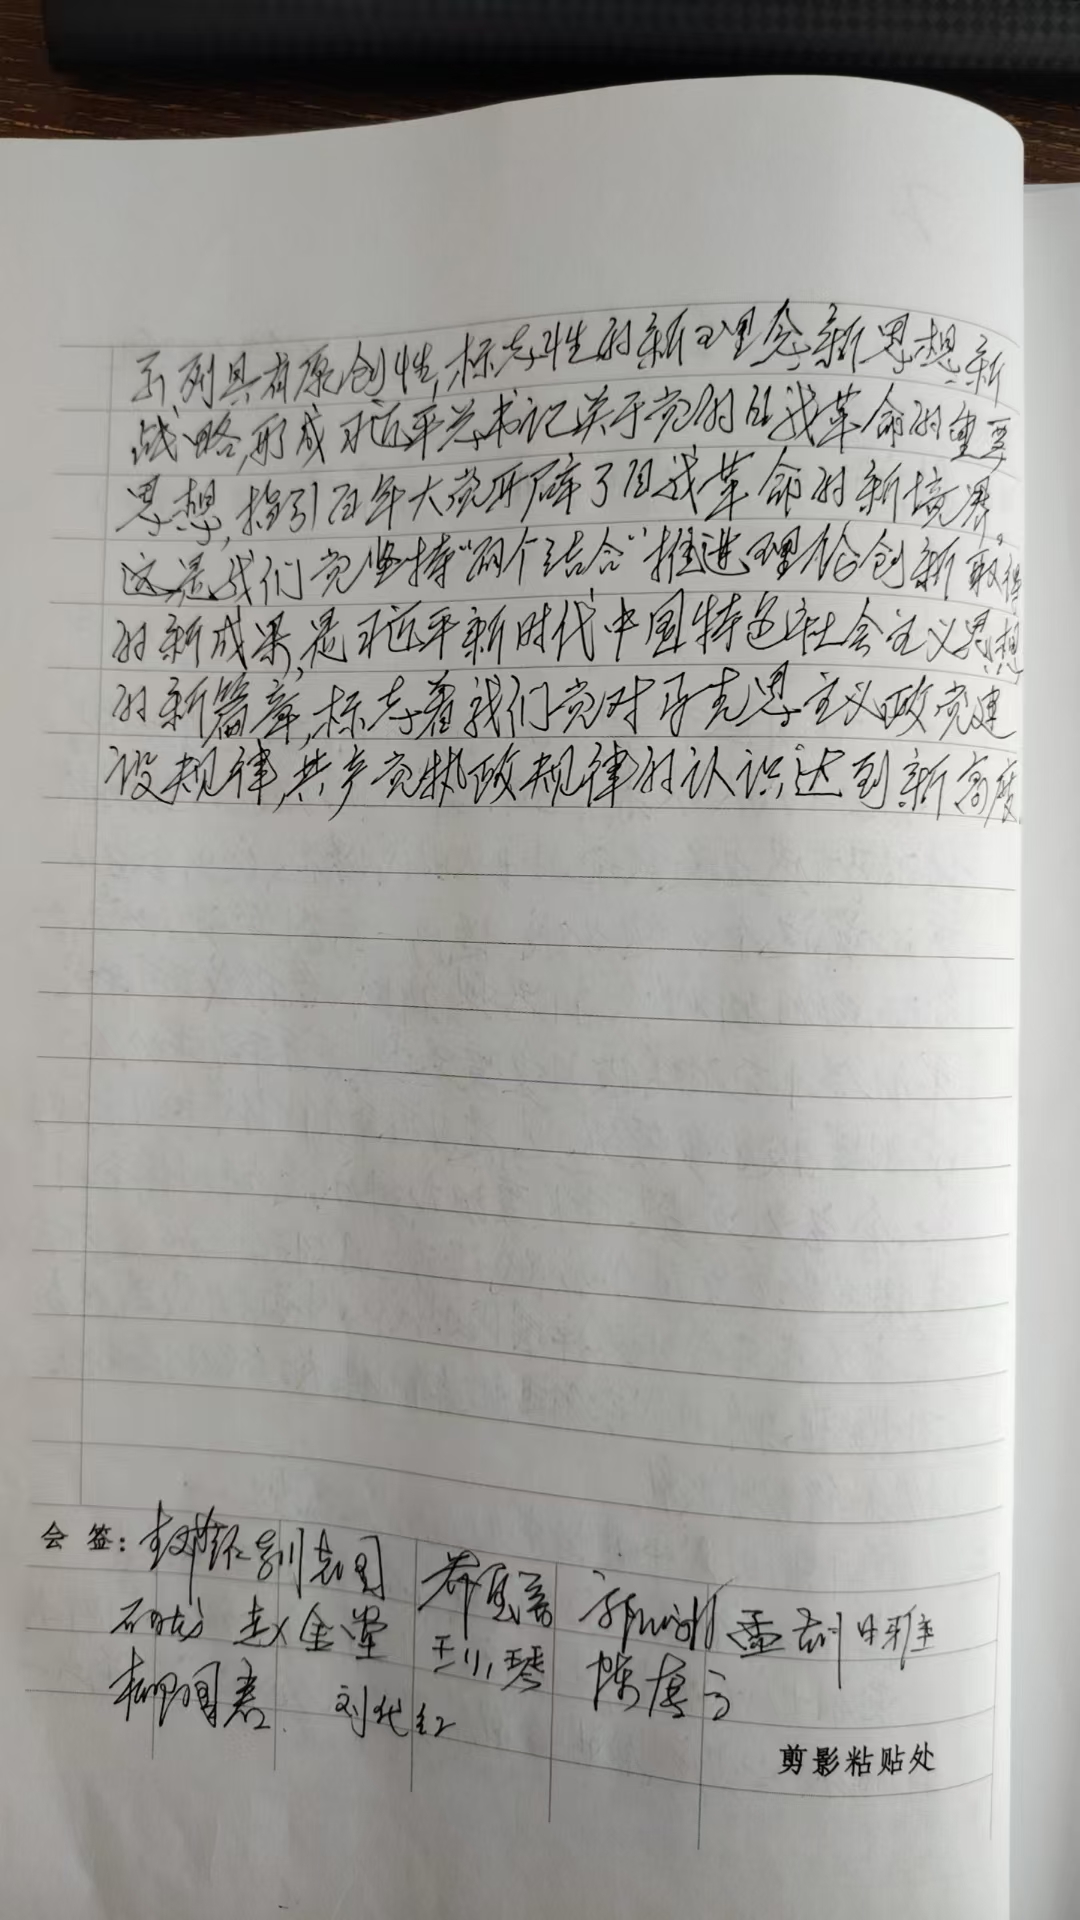 系列具有原创性,标志性的新理念、新思想、新
战略,形成习近平总书记关于党的自我革命的重要
思想,指引百年大党开辟了自我革命的新境界。
这是我们党坚持“两个结合”推进理论创新取得
的新成果,是习近平新时代中国特色社会主义思想
的新篇章,标志着我们党对马克思主义政党建
设规律,共产党执政规律的认识达到新高度。
会 签:
赵金堂 王小琴
刘代红
剪影粘贴处